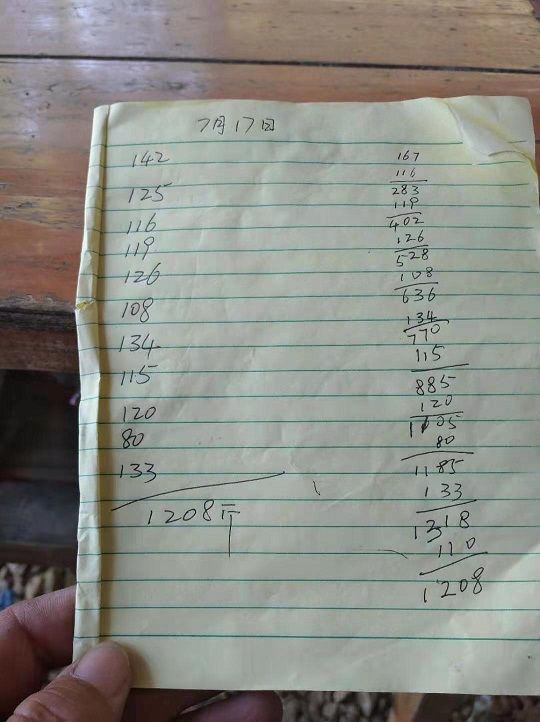 7月17日
142
125
116
119
126
108
134
115
120
80
133
1208斤
167
116
283
119
402
126
528
108
636
134
770
115
885
120
1105
80
1185
133
1318
110
1208